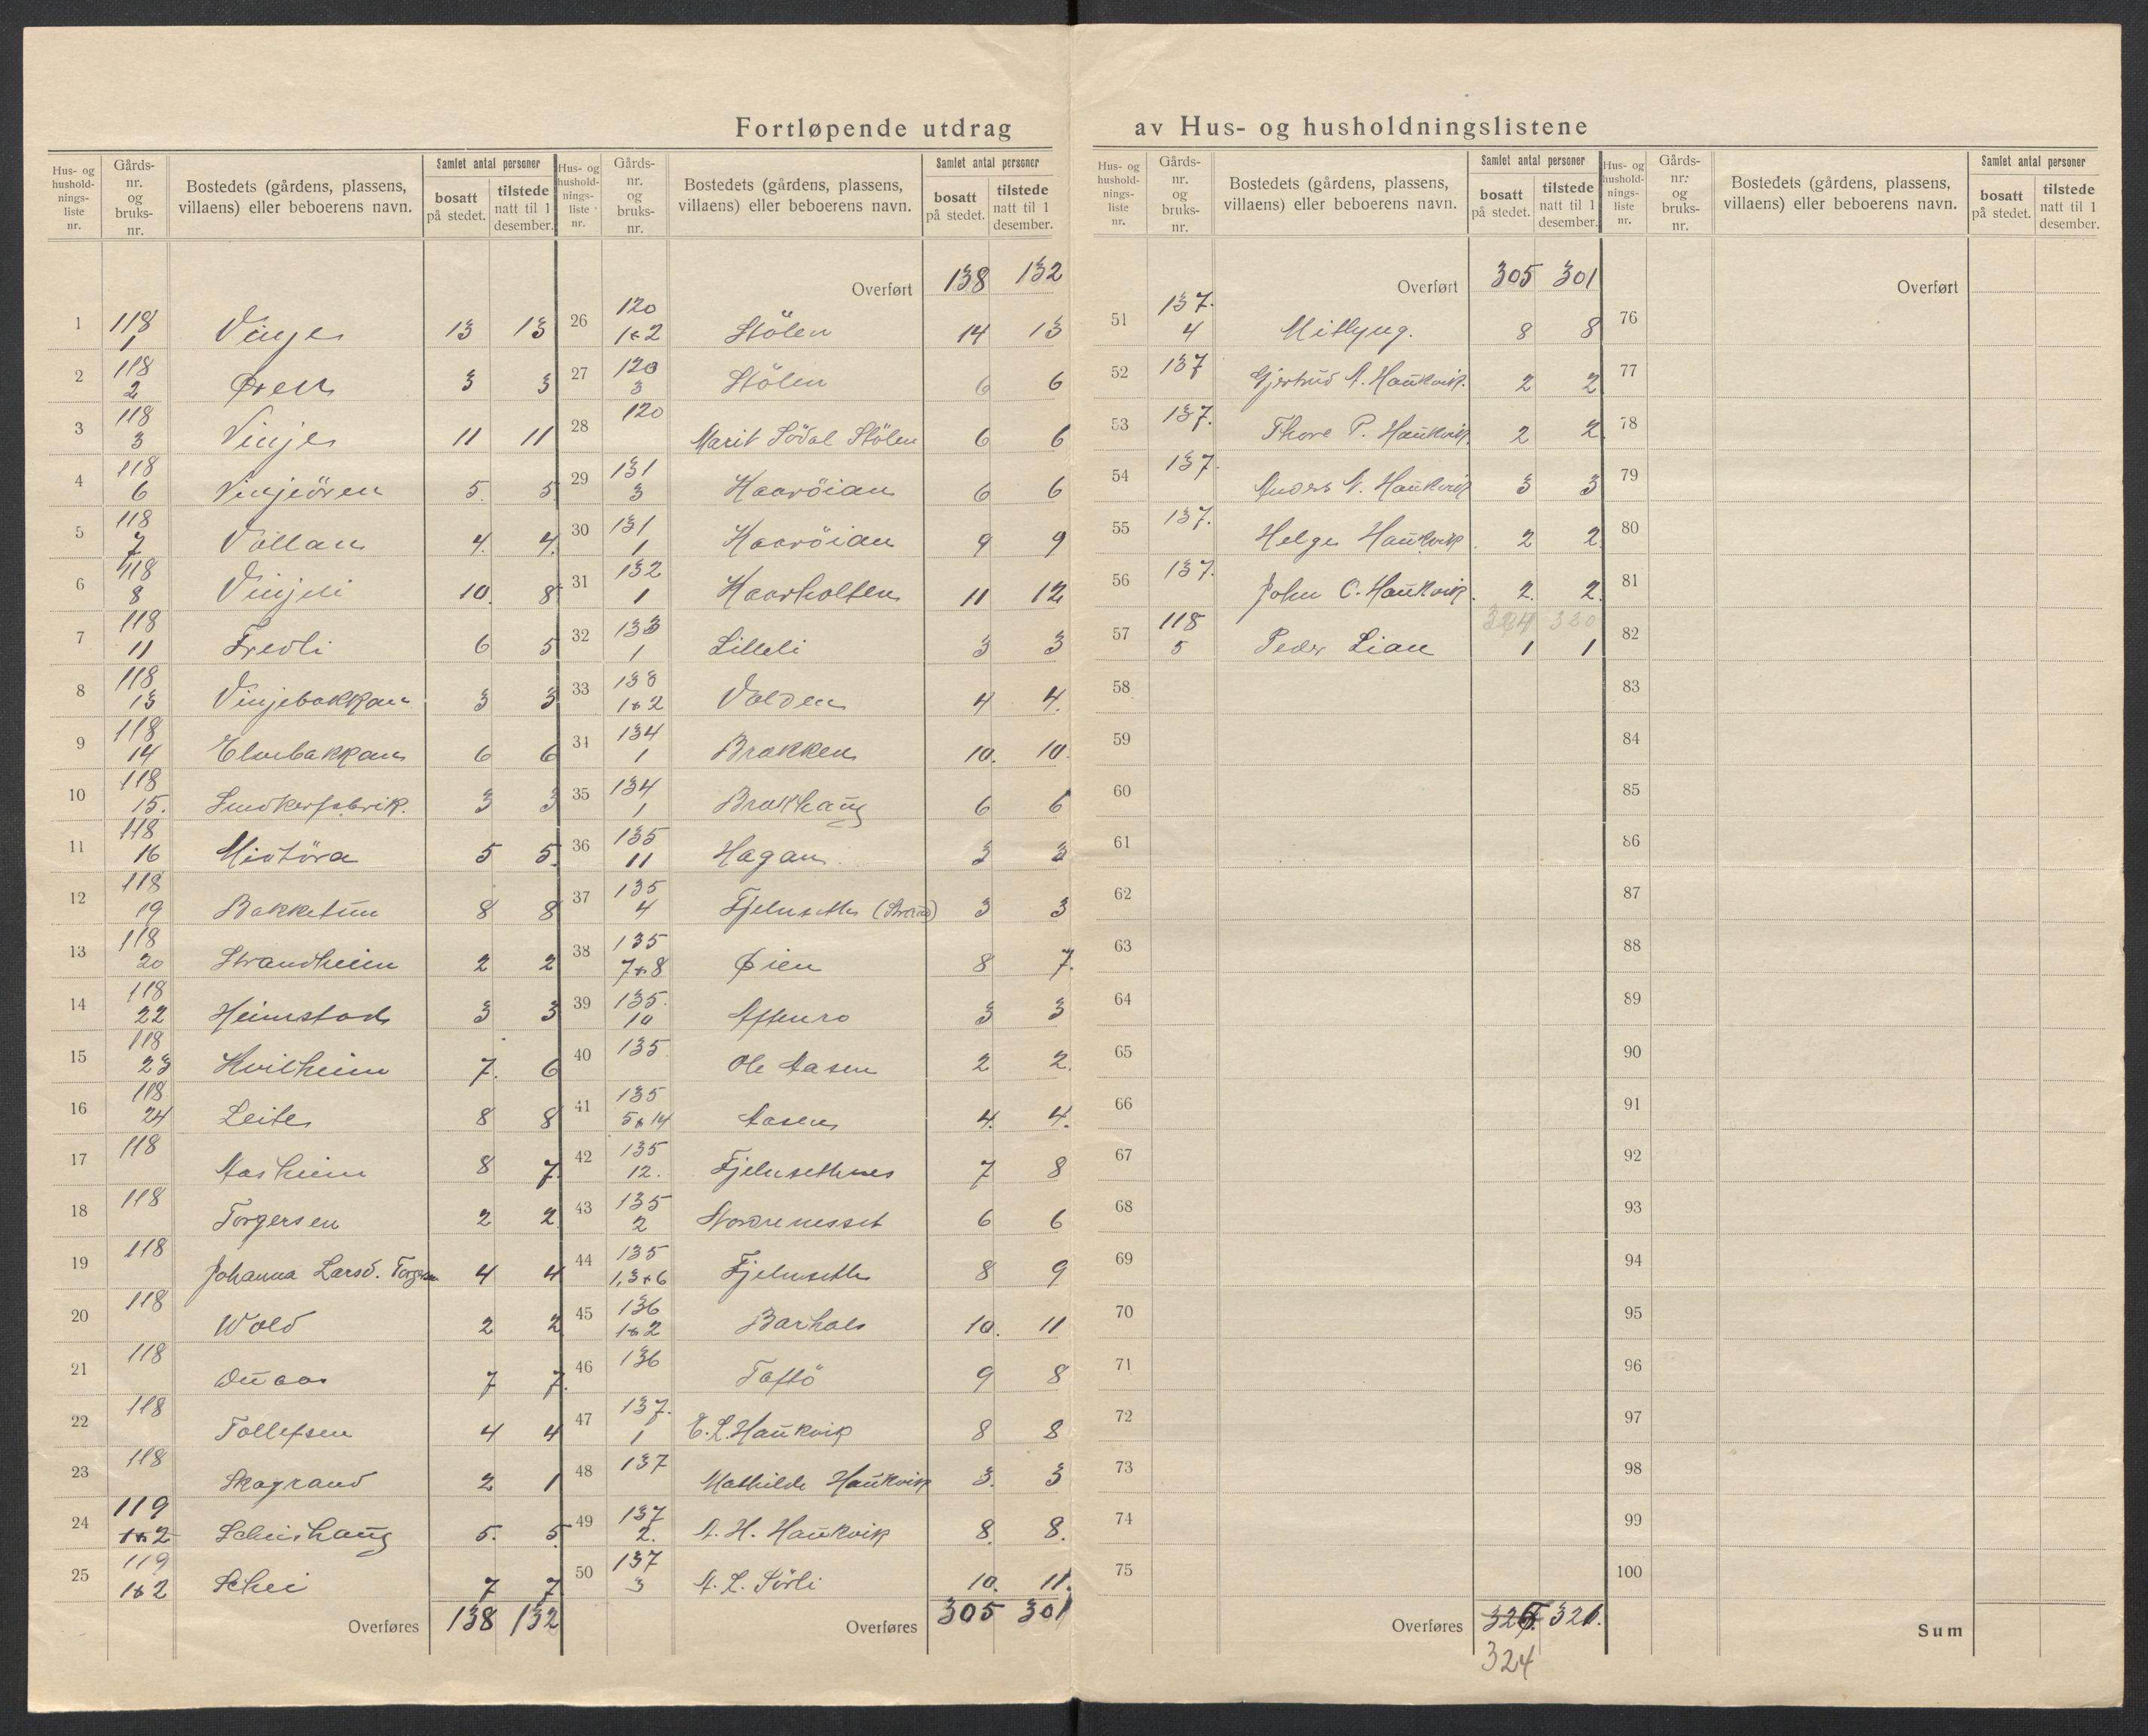 Fortløpende utdrag av Hus- og husholdningslistene
Hus- og hushold-nings-liste nr. | Gårds-nr. og bruks-nr. | Bostedets (gårdens, plassens, villaens) eller beboerens navn. | Samlet antal personer | bosatt på stedet. | tilstede natt til 1 desember.
1 118 1 Vinje 13 13
2 118 2 Øren 3 3
3 118 3 Vinje 11 11
4 118 6 Vinjeören 5. 5
5 118 7 Vollan 4. 4.
6 118 8 Vinjeli 10. 8
7 118 11 Fredli 6 5
8 118 13 Vinjebakkan 3 3
9 118 14 Elvebakkan 6 6
10 118 15. Snedkerfabrik. 3 3
11 118 16 Midtöra 5 5.
12 118 19 Bakketun 8 8
13 118 20 Strandheim 2 2
14 118 22 Heimstad 3 3
15 118 23 Hvilheim 7. 6
16 118 24 Leite 8 8
17 118 Aasheim 8 7.
18 118 Torgersen 2 2
19 118 Johanna Larsd. 4 4
20 118 Wold 2 2
21 118 7 7.
22 118 Tollefsen 4 4
23 118 Skogrand 2 1
24 119 1+2 Scheishaug 5. 5
25 119 1+2 Schei 7 7
Overføres 138 132
Hus- og hushold-nings-liste nr. | Gårds-nr. og bruks-nr. | Bostedets (gårdens, plassens, villaens) eller beboerens navn. | Samlet antal personer | bosatt på stedet. | tilstede natt til 1 desember.
Overført 138 132
26 120 1+2 Stölen 14 13
27 120 3 Stölen 6 6
28 120 Marit Södal Stölen 6 6
29 131 3 Haaröian 6 6
30 131 1 Haaröian 9 9
31 132 1 Haarholten 11 12
32 133 1 Lilleli 3 3
33 133 1+2 Volden 4 4.
34 134 1 Brakken 10. 10.
35 134 1 Brakhaug 6 6
36 135 11 Hagan 3 3
37 135 4 Fjelnseth 3 3
38 135 7+8 Øien 8 7.
39 135. 10 Aftenro 3 3
40 135 Ole Aasen 2 2.
41 135 5+14 Aasen 4. 4.
42 135 12. Fjelnsethnes 7 8
43 135 2 Stordrenesset 6 6
44 135 1,3+6 Fjelnseth 8 9
45 136 1+2 Barhals 10. 11
46 136 Taftö 9 8
47 137. 1 E. L. Haukvik 8 8
48 137 Mathilde Haukvik 3. 3
49 137 2. A. H. Haukvik 8. 8.
50 137 3 A. L. Sörli 10. 11.
Overføres 305 301
Hus- og hushold-nings-liste nr. | Gårds-nr. og bruks-nr. | Bostedets (gårdens, plassens, villaens) eller beboerens navn. | Samlet antal personer | bosatt på stedet. | tilstede natt til 1 desember.
Overført 305 301
51 137. 4 Mitlyng. 8 8
52 137 Gjertrud A. Haukvik. 2 2
53 137. Thore P. Haukvik. 2 2.
54 137. Anders N. Haukvik 3 3
55 137. Helge Haukvik. 2 2
56 137. John C. Haukvik. 2. 2.
324 320
57 118 5 Peder Lian 1 1
58
59
60
61
62
63
64
65
66
67
68
69
70
71
72
73
74
75
Overføres 321.
324
Hus- og hushold-nings-liste nr. | Gårds-nr. og bruks-nr. | Bostedets (gårdens, plassens, villaens) eller beboerens navn. | Samlet antal personer | bosatt på stedet. | tilstede natt til 1 desember.
Overført
76
77
78
79
80
81
82
83
84
85
86
87
88
89
90
91
92
93
94
95
96
97
98
99
100
Sum